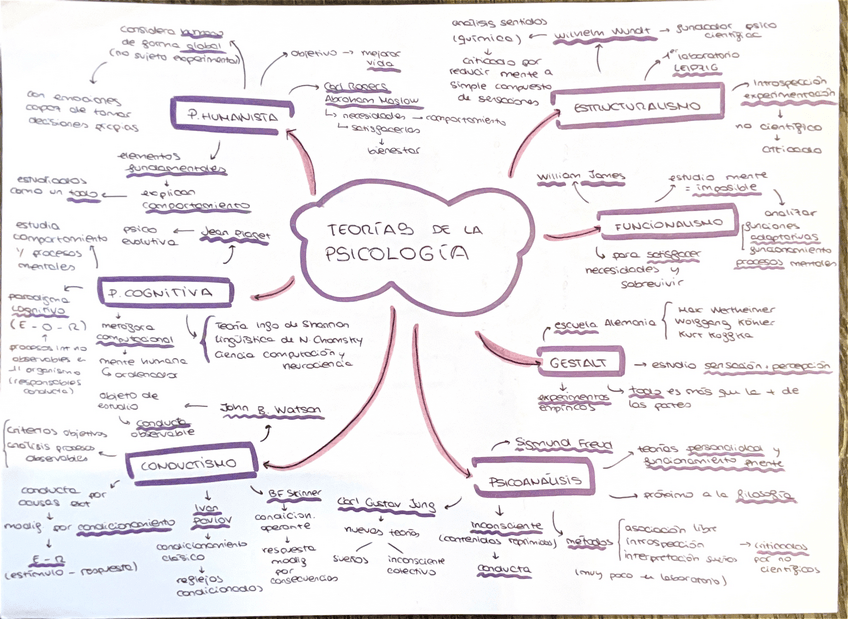 TEORÍAS DE LA
PSICOLOGÍA
considera humano
de forma global
(no sujeto experimental)
con emociones
capaz de tomar
decisiones propias
objetivo → mejorar
vida
Carl Rogers
Abraham Maslow
↳ necesidades → comportamiento
↳ satisfacerlas
↓
bienestar
P. HUMANISTA
elementos
fundamentales
↓
explican
comportamiento
estudiados
como un todo
análisis sentidos
(química)
↓
criticado por
reducir mente a
simple compuesto
de sensaciones
← Wilhelm Wundt → fundador psico
científica
1er laboratorio
LEIPZIG
ESTRUCTURALISMO
introspección
experimentación
↓
no científico
↓
criticado
William James
estudio mente
= imposible
FUNCIONALISMO
analizar
funciones
adaptativas
funcionamiento
procesos mentales
↳ para satisfacer
necesidades y
sobrevivir
estudia
comportamiento
y procesos
mentales
psico
evolutiva
← Jean Piaget
P. COGNITIVA
paradigma
cognitivo
(E - O - R)
↑
procesos int no
observables en
el organismo
(responsables
conducta)
metáfora
computacional
↓
mente humana
↳ ordenador
Teoría info de Shannon
Lingüística de N Chomsky
Ciencia computación y
neurociencia
escuela Alemania
Max Wertheimer
Wolfgang Köhler
Kurt Koffka
GESTALT
→ estudio sensación y percepción
↳ todo es más que la + de
las partes
experimentos
empíricos
objeto de
estudio
↳ conducta
observable
← John B. Watson
criterios objetivos
análisis procesos
observables
CONDUCTISMO
conducta por
causas ext
↓
modif por condicionamiento
↓
E - R
(estímulo - respuesta)
Ivan
Pavlov
↓
condicionamiento
clásico
↓
reflejos
condicionados
BF Skinner
↓
condicion.
operante
↓
respuesta
modif
por
consecuencias
Sigmund Freud
PSICOANÁLISIS
teorías personalidad y
funcionamiento mente
→ próximo a la filosofía
Carl Gustav Jung
↓
nuevas teorías
sueños
inconsciente
colectivo
inconsciente
(contenidos reprimidos)
↓
conducta
métodos
asociación libre
introspección
interpretación sueños
(muy poco en laboratorio)
→ criticados
por no
científicos